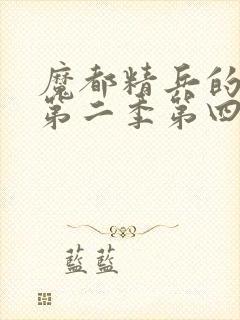 魔都精兵的
第二季第四
藍藍